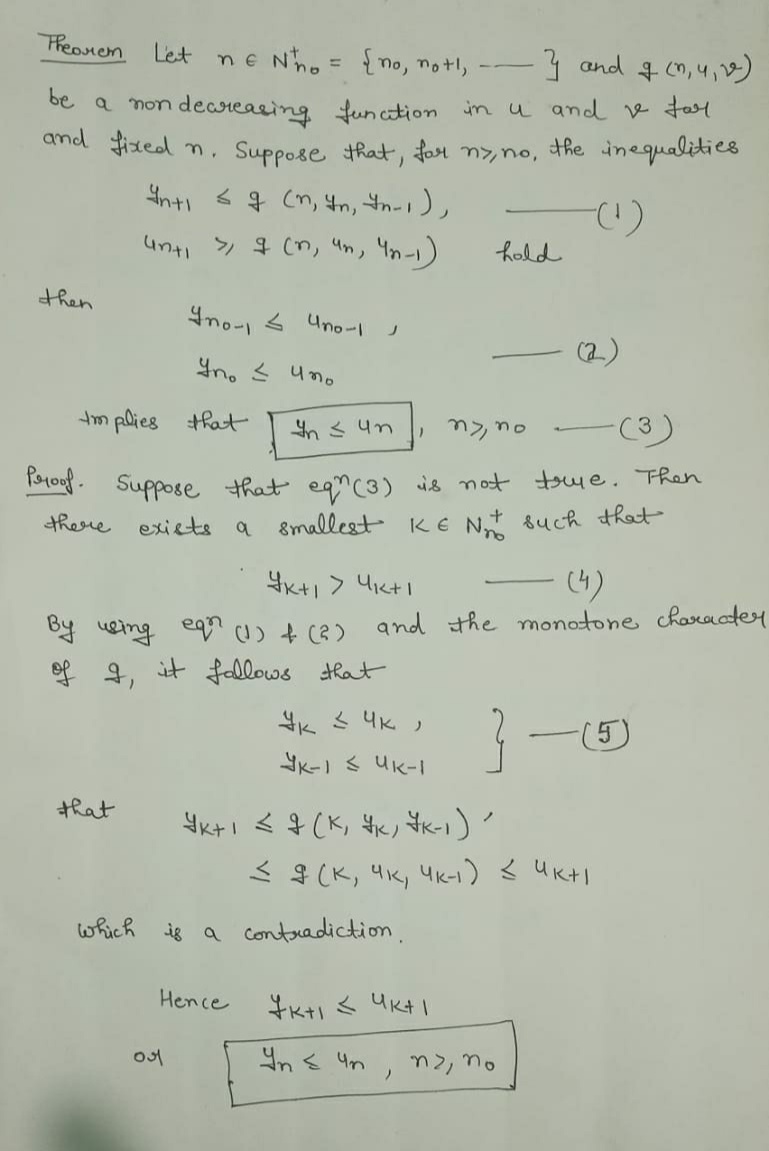 Theorem Let n ∈ N⁺ₙ₀ = {n₀, n₀+1, ——} and g(n,u,v)
be a nondecreasing function in u and v for
and fixed n. Suppose that, for n≥n₀, the inequalities
yₙ₊₁ ≤ g(n, yₙ, yₙ₋₁), ——(1)
uₙ₊₁ ≥ g(n, uₙ, uₙ₋₁) hold
then
yₙ₀₋₁ ≤ uₙ₀₋₁ ,
—— (2)
yₙ₀ ≤ uₙ₀
Implies that yₙ ≤ uₙ , n≥n₀ ——(3)
Proof. Suppose that eqⁿ(3) is not true. Then
there exists a smallest K ∈ N⁺ₙ₀ such that
y_{K+1} > u_{K+1} —— (4)
By using eqⁿ (1) & (2) and the monotone character
of g, it follows that
y_K ≤ u_K ,
} —(5)
y_{K-1} ≤ u_{K-1}
that
y_{K+1} ≤ g(K, y_K, y_{K-1})
≤ g(K, u_K, u_{K-1}) ≤ u_{K+1}
Which is a contradiction.
Hence y_{K+1} ≤ u_{K+1}
or yₙ ≤ uₙ , n≥n₀